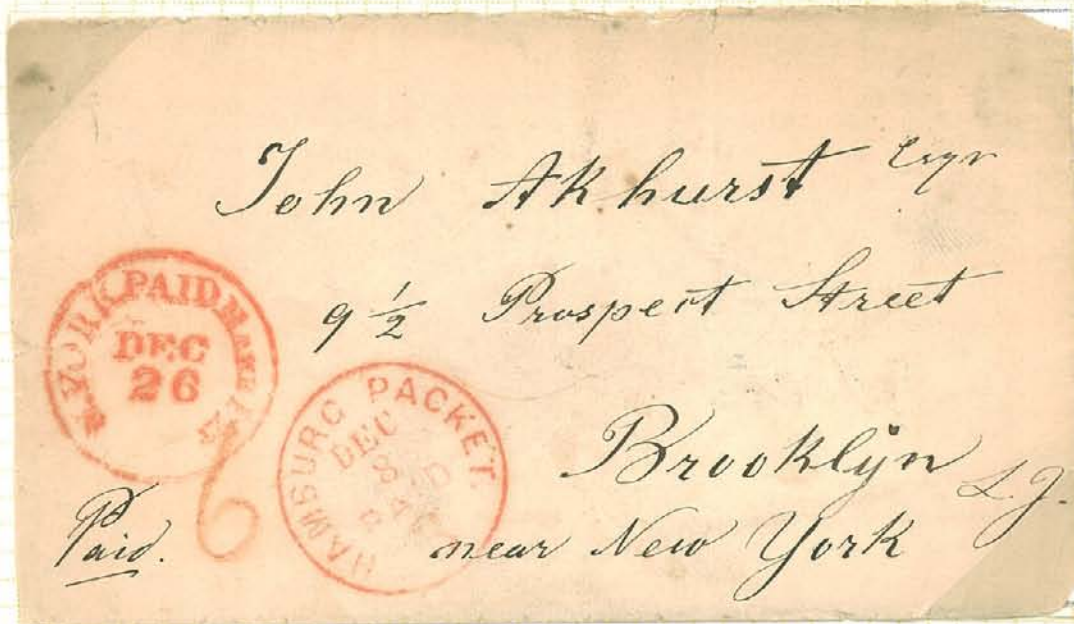 John Akhurst Esqr
9 1/2 Prospect Street
Brooklyn L.J.
near New York
Paid.
N. YORK PAID HAMB. PKT.
DEC
26
6
HAMBURG PACKET.
DEC
8
PAID